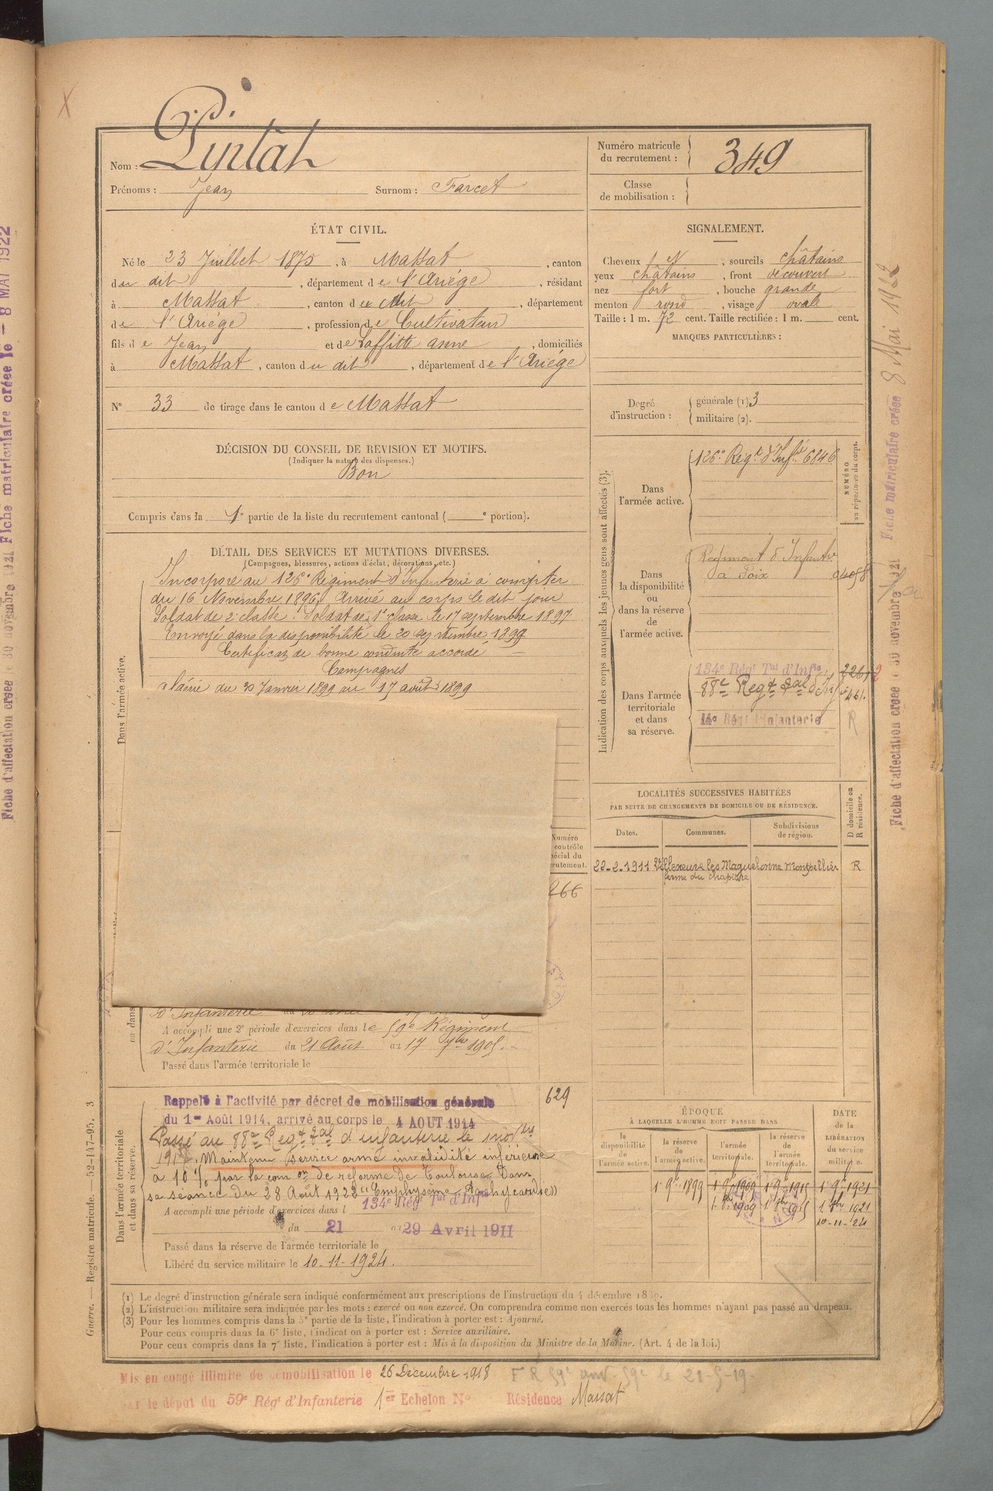 Nom : Pintat
Prénoms : Jean Surnom : Farcet
Numéro matricule du recrutement : 349
Classe de mobilisation :
ÉTAT CIVIL.
Né le 23 Juillet 1875, à Massat, canton
du dit, département de l'Ariége, résidant
à Massat, canton du dit, département
de l'Ariége, profession de Cultivateur
fils de Jean et de Laffitte anne, domiciliés
à Massat, canton du dit, département de l'Ariége
N° 33 de tirage dans le canton de Massat
SIGNALEMENT.
Cheveux et, sourcils châtains
yeux châtains, front découvert
nez fort, bouche grande
menton rond, visage ovale
Taille : 1 m. 72 cent. Taille rectifiée : 1 m. cent.
MARQUES PARTICULIÈRES :
Degré d'instruction : générale (1) 3
militaire (2).
DÉCISION DU CONSEIL DE REVISION ET MOTIFS.
(Indiquer la nature des dispenses.)
Bon
Compris dans la 1e partie de la liste du recrutement cantonal ( e portion).
DÉTAIL DES SERVICES ET MUTATIONS DIVERSES.
(Campagnes, blessures, actions d'éclat, décorations, etc.)
Dans l'armée active.
Incorporé au 126e Régiment d'Infanterie à compter
du 16 Novembre 1896, Arrivé au corps le dit jour
Soldat de 2e classe. Soldat de 1e classe le 17 septembre 1897
Envoyé dans la disponibilité le 20 septembre 1899
Certificat de bonne conduite accordé
Campagnes
Algérie du 30 Janvier 1899 au 17 août 1899
Indication des corps auxquels les jeunes gens sont affectés (3).
NUMÉRO au répertoire du corps.
Dans l'armée active.
126e Regt d'Infrie 6846
Dans la disponibilité ou dans la réserve de l'armée active.
Régiment d'Infantie
de Foix
Dans l'armée territoriale et dans sa réserve.
134e Rég Tal d'Infie
88e Regt Tal d'If
14e Régt d'Infanterie R
LOCALITÉS SUCCESSIVES HABITÉES
PAR SUITE DE CHANGEMENTS DE DOMICILE OU DE RÉSIDENCE.
Dates. Communes. Subdivisions de région. D domicile ou R résidence.
22-2-1911 Villeneuve les Maguelonne Montpellier R
ferme du chapitre
Numéro
contrôle
spécial du
recrutement.
266
d'Infanterie
A accompli une 2e période d'exercices dans le 59e Régiment
d'Infanterie du 21 Août au 17 7bre 1905.
Passé dans l'armée territoriale le
Dans l'armée territoriale et dans sa réserve.
Rappelé à l'activité par décret de mobilisation générale
du 1er Août 1914, arrivé au corps le 4 AOUT 1914
629
Passé au 88e Regt Tal d'infanterie le
1917. Maintenu service armé invalidité inférieure
à 10 % par la comon de réforme de Toulouse dans
sa séance du 28 Août 1922 "Emphysème - Tachycardie))
A accompli une période d'exercices dans l 134e Rég Tal d'Infie
du 21 au 29 Avril 1911
Passé dans la réserve de l'armée territoriale le
Libéré du service militaire le 10-11-1924.
ÉPOQUE
À LAQUELLE L'HOMME DOIT PASSER DANS
la disponibilité de l'armée active. la réserve de l'armée active. l'armée territoriale. la réserve de l'armée territoriale.
DATE de la LIBÉRATION du service militaire.
1e 9bre 1899 1e 9bre 1909 1e 9bre 1915 1e 9bre 1921
1e 8bre 1909 1e 8bre 1915 1e 8bre 1921
10-11-24
(1) Le degré d'instruction générale sera indiqué conformément aux prescriptions de l'instruction du 4 décembre 1889.
(2) L'instruction militaire sera indiquée par les mots : exercé ou non exercé. On comprendra comme non exercés tous les hommes n'ayant pas passé au drapeau.
(3) Pour les hommes compris dans la 5e partie de la liste, l'indication à porter est : Ajourné.
Pour ceux compris dans la 6e liste, l'indication à porter est : Service auxiliaire.
Pour ceux compris dans la 7e liste, l'indication à porter est : Mis à la disposition du Ministre de la Marine. (Art. 4 de la loi.)
Mis en congé illimité de démobilisation le 26 Décembre 1918
par le dépôt du 59e Régt d'Infanterie 1er Echelon N° Résidence Massat
Guerre. — Registre matricule. — 52-147-95. 3
Fiche d'affectation créée le 30 novembre 1921 Fiche matriculaire créée le - 8 MAI 1922
Fiche d'affectation créée le 30 novembre 1921 Fiche matriculaire créée 8 Mai 1922